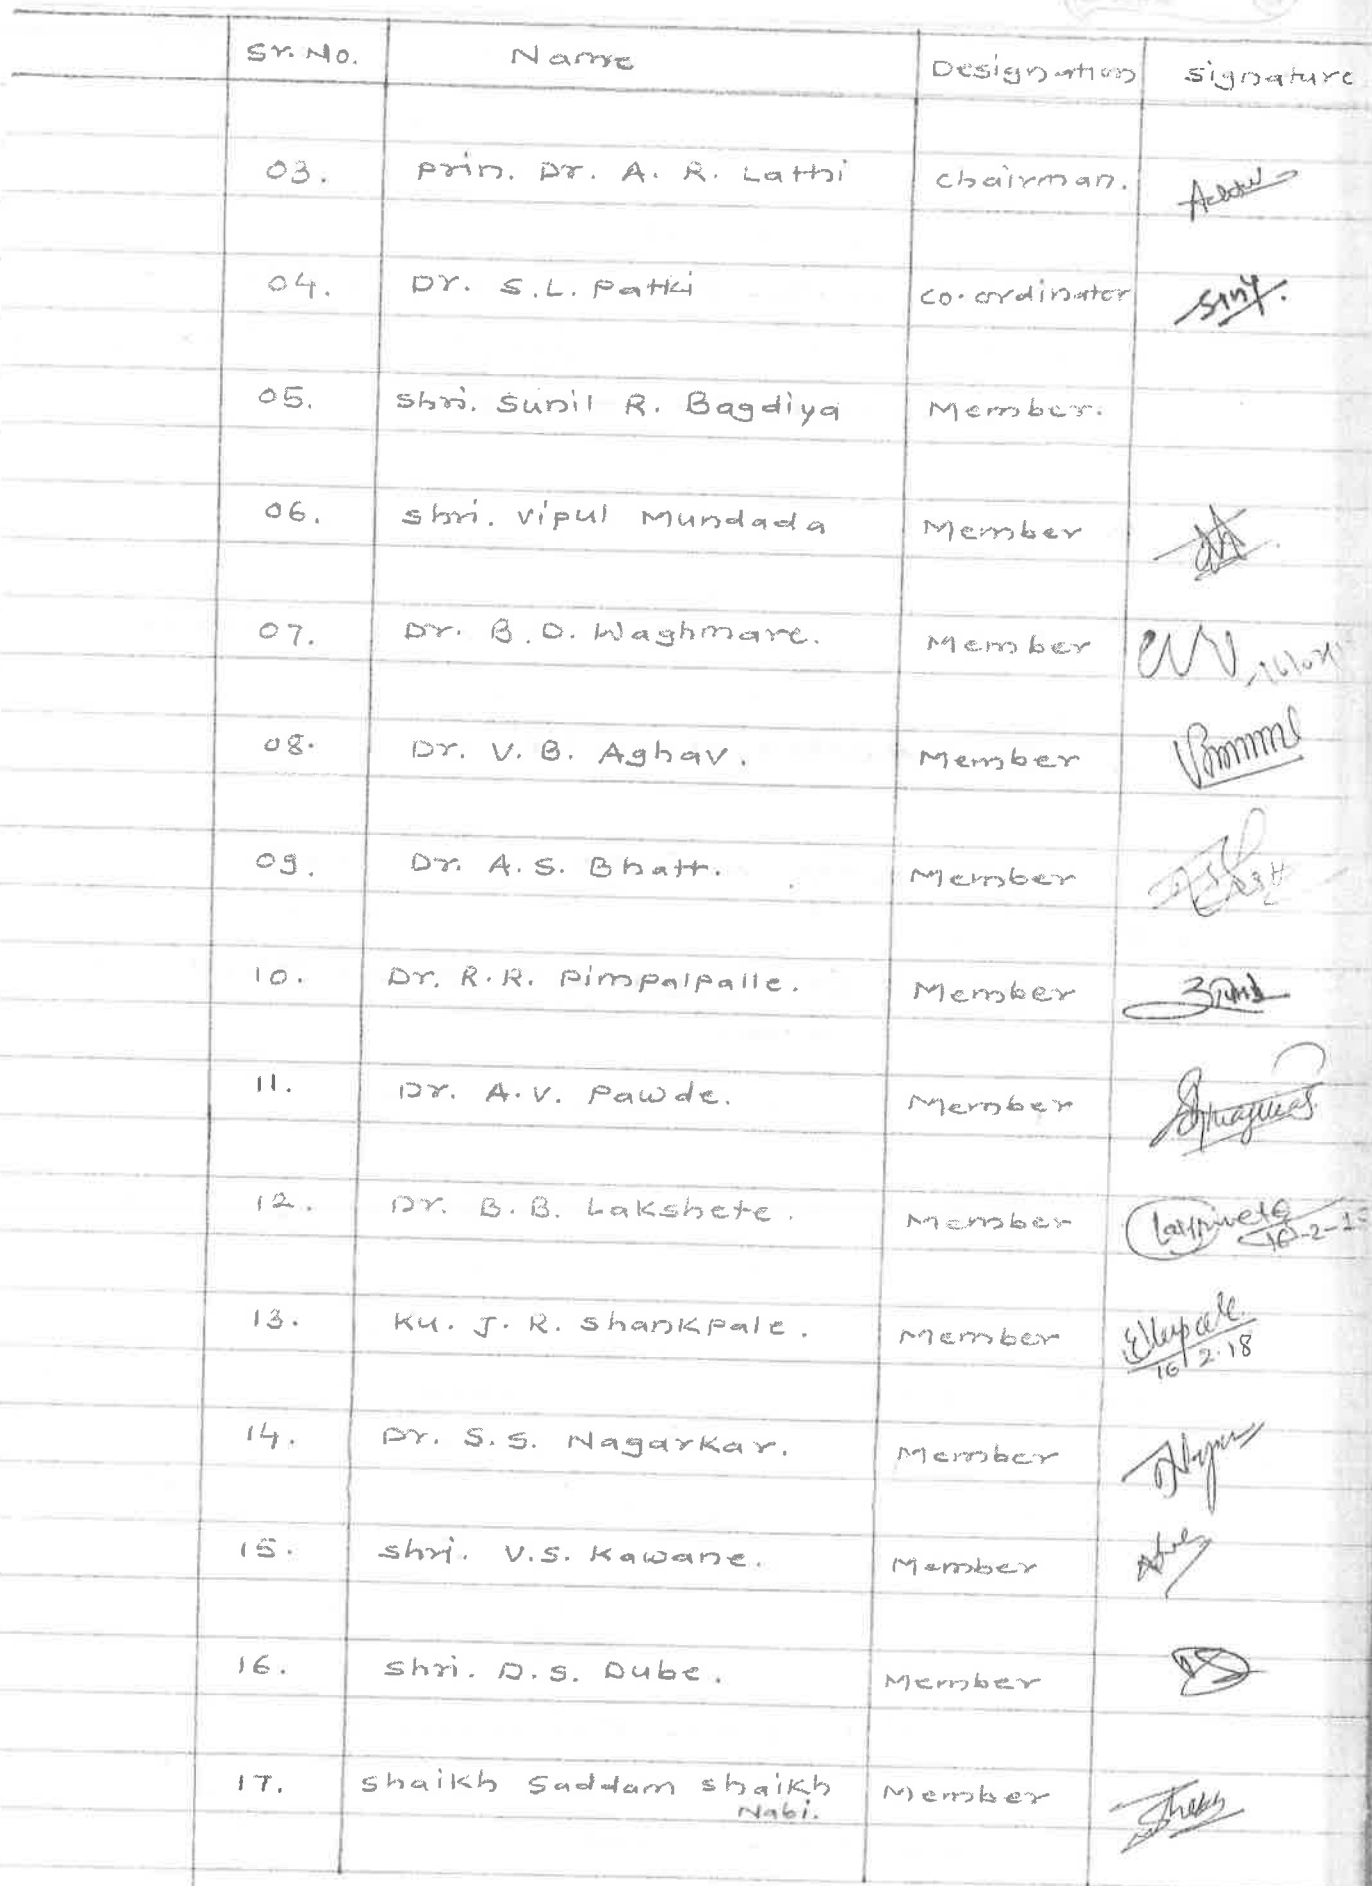 Sr. No. Name Designation Signature
03. Prin. Dr. A. R. Lathi Chairman.
04. Dr. S.L. Patki Co-ordinator
05. Shri. Sunil R. Bagdiya Member.
06. Shri. Vipul Mundada Member
07. Dr. B.D. Waghmare. Member
08. Dr. V. B. Aghav. Member
09. Dr. A.S. Bhatt. Member
10. Dr. R.R. Pimpalpalle. Member
11. Dr. A.V. Pawde. Member
12. Dr. B.B. Lakshete. Member
16-2-18
13. Ku. J. R. Shankpale. Member
16/2.18
14. Dr. S.S. Nagarkar. Member
15. Shri. V.S. Kawane. Member
16. Shri. D.S. Dube. Member
17. Shaikh Saddam Shaikh Member
Nabi.